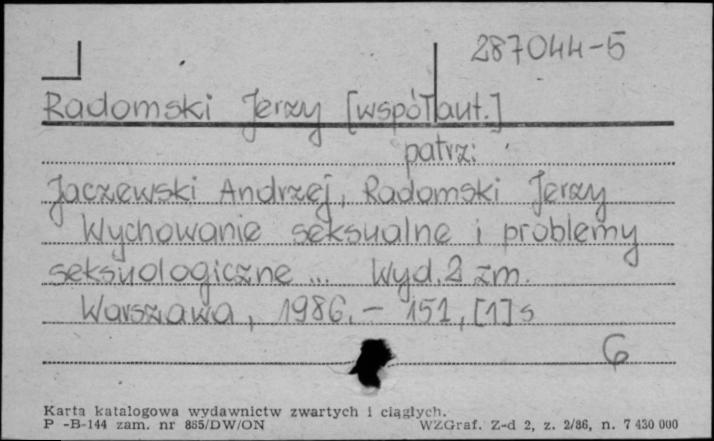 287044-5
Radomski Jerzy [współaut.]
patrz:
Jaczewski Andrzej, Radomski Jerzy
Wychowanie seksualne i problemy
seksuologiczne ... Wyd. 2 zm.
Warszawa, 1986. - 151, [1] s
G
Karta katalogowa wydawnictw zwartych i ciągłych.
P -B-144 zam. nr 865/DW/ON WZGraf. Z-d 2, z. 2/86, n. 7 430 000